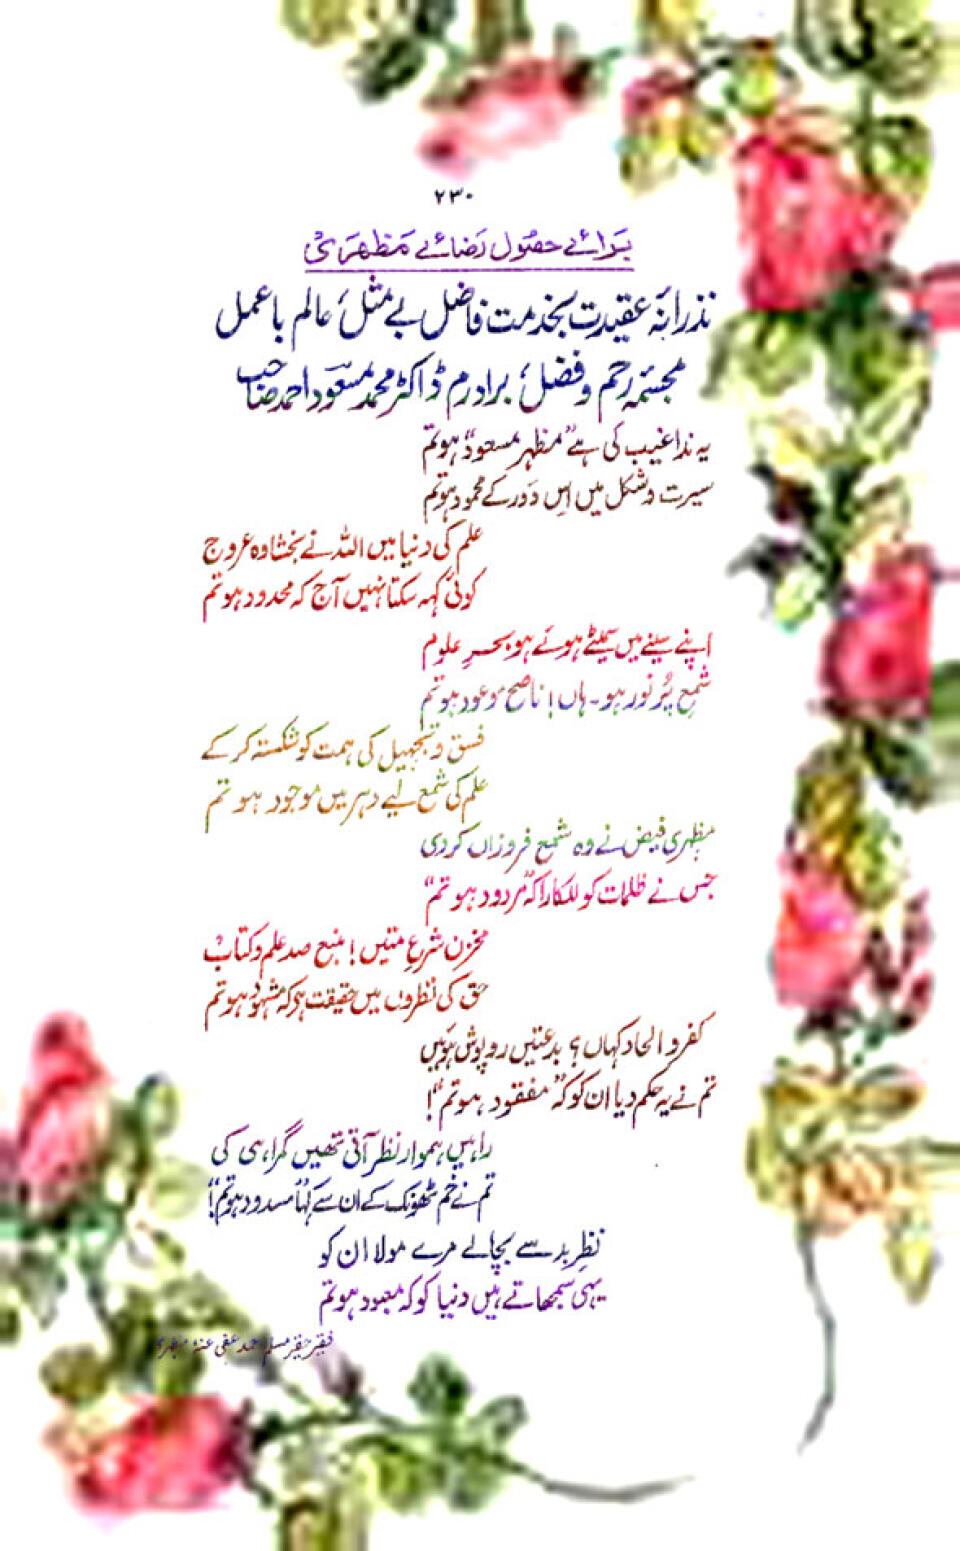 ۲۳۰
برائے حصول رضائے مظہری
نذرانۂ عقیدت بخدمت فاضل بے مثل، عالم باعمل
مجسمۂ رحم و فضل، برادرم ڈاکٹر محمد مسعود احمد صاحب
یہ ندا غیب کی ہے "مظہر مسعود" ہو تم
سیرت و شکل میں اس دور کے محمود ہو تم
علم کی دنیا میں اللہ نے بخشا وہ عروج
کوئی کہہ سکتا نہیں آج کہ محدود ہو تم
اپنے سینے میں سمیٹے ہوئے ہو بحرِ علوم
شمعِ پُرنور ہو۔ ہاں! ناصح موعود ہو تم
فسق و تجہیل کی ہمت کو شکستہ کر کے
علم کی شمع لیے دہر میں موجود ہو تم
مظہری فیض نے وہ شمع فروزاں کر دی
جس نے ظلمات کو للکارا کہ "مردود ہو تم"
مخزن شرعِ متیں! منبع صد علم و کتاب
حق کی نظروں میں حقیقت ہے کہ مشہود ہو تم
کفر و الحاد کہاں؟ بدعتیں روپوش ہوئیں
تم نے یہ حکم دیا ان کو کہ "مفقود ہو تم"!
راہیں ہموار نظر آتی تھیں گمراہی کی
تم نے خم ٹھونک کے ان سے کہا "مسدود ہو تم"!
نظرِ بد سے بچالے مرے مولا ان کو
یہی سمجھاتے ہیں دنیا کو کہ معبود ہو تم
فقیر حقیر مسلم احمد عفی عنہ